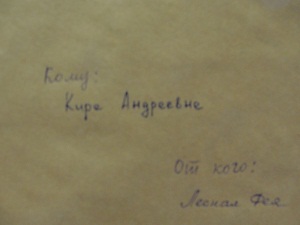 Кому:
Кире Андреевне
От кого:
Лесная Фея